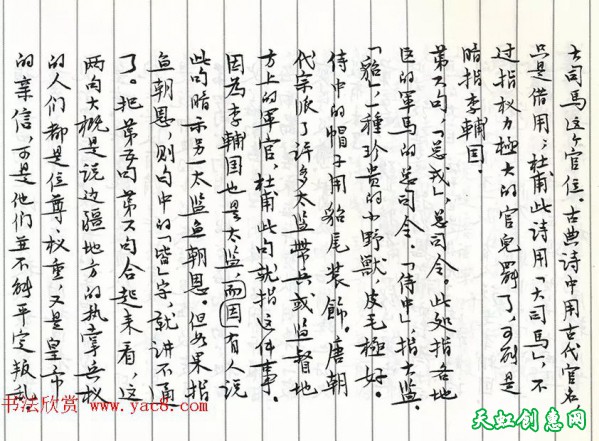 大司馬这个官位。古典诗中用古代官名,
只是借用;杜甫此诗用「大司馬」,不
过指权力極大的官儿罢了,可是
暗指李輔国。
第六句,「总戎」,总司令。此处指各地
区的軍馬的总司令。「侍中」,指太监。
「貂」,一種珍贵的小野獸,皮毛極好。
侍中的帽子用貂尾装飾。唐朝
代宗派了许多太监带兵或监督地
方上的軍官,杜甫此句就指这件事。
因为李輔国也是太监,而因有人说
此句暗示另一太监鱼朝恩。但如果指
鱼朝恩,则句中的「皆」字,就讲不通
了。把第五句第六句合起来看,这
两句大概是说边疆地方的执掌兵权
的人们都是位尊、权重,又是皇帝
的亲信,可是他们並不能平定叛乱。
书法欣赏
www.yac8.com
天虹创意网